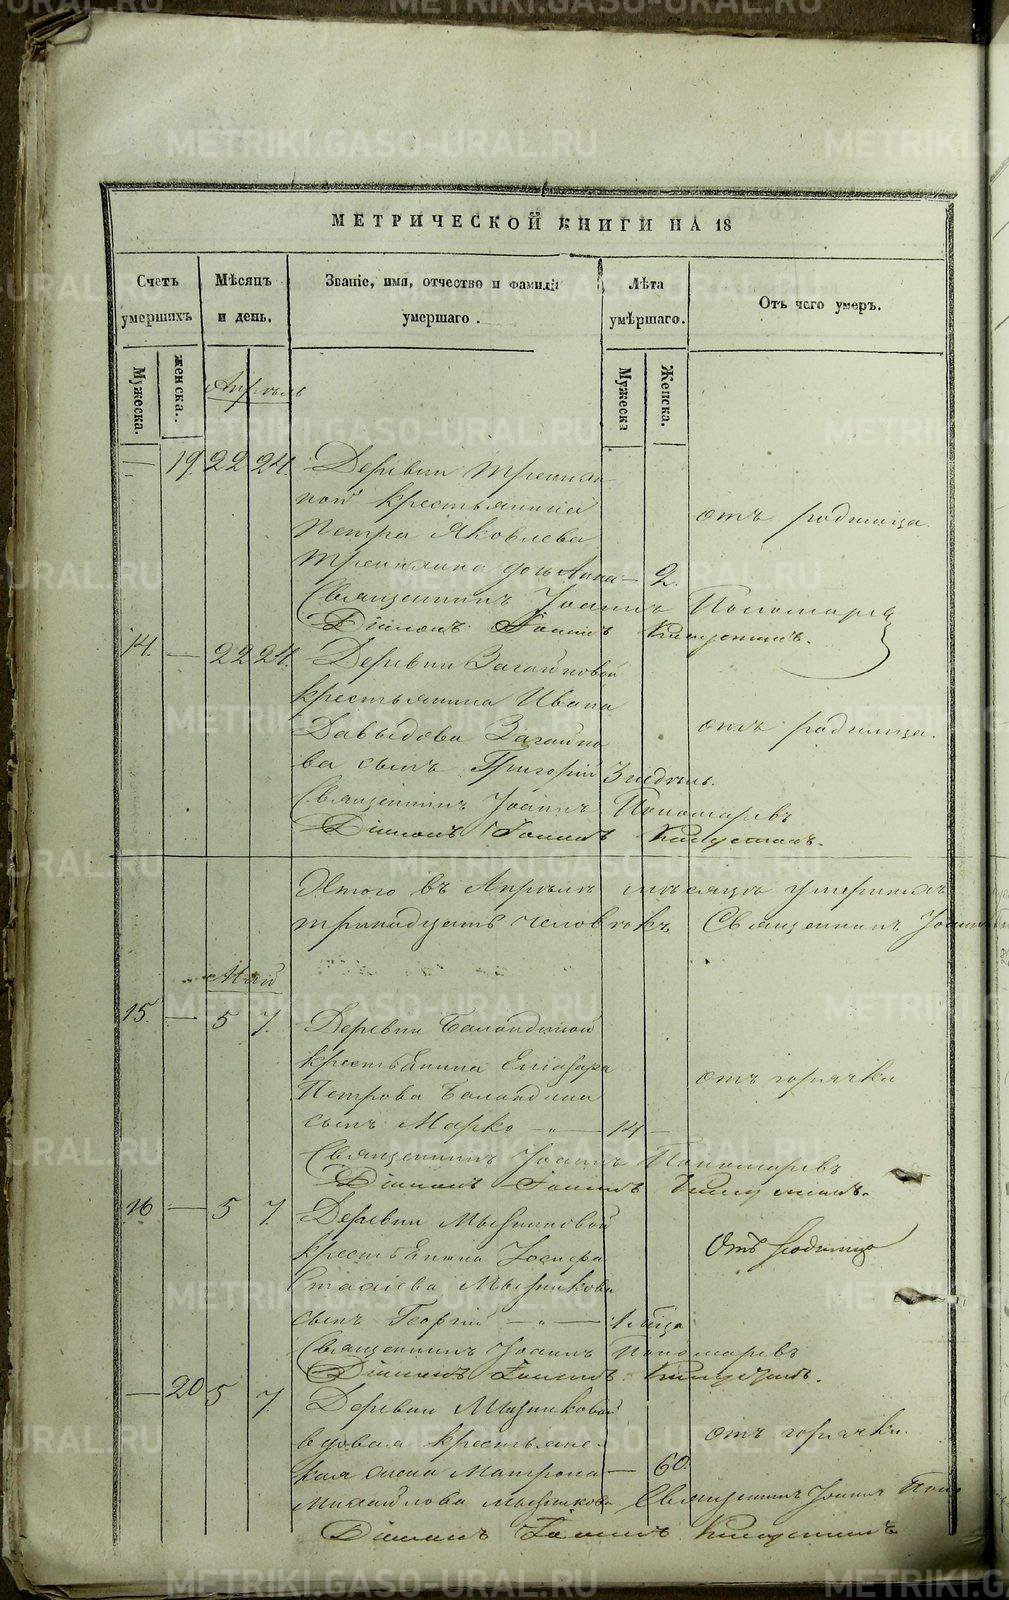 МЕТРИЧЕСКОЙ КНИГИ НА 18
Счетъ умершихъ
Мѣсяцъ и день.
Званіе, имя, отчество и фамилія умершаго.
Лѣта умѣршаго.
Отъ чего умеръ.
Мужеска.
женска.
Мужеска
Женска.
Апрѣль
— 19 22 24. Деревни
ной крестьянина
Петра Яковлева
дочь Анна — 2.
отъ родимца.
Священникъ Іоаннъ Пономаревъ
Діаконъ Іоаннъ
14. — 22 24. Деревни Загайновой
крестьянина Ивана
Давыдова Загайно
ва сынъ Григорій 3 недѣль.
отъ родимца.
Священникъ Іоаннъ Пономаревъ
Діаконъ Іоаннъ
Итого въ Апрѣлѣ мѣсяцѣ умершихъ
тринадцать человѣкъ Священникъ Іоаннъ
Май
15. — 5 7. Деревни Баландиной
крестьянина Елизара
Петрова Баландина
сынъ Марко — „ — 14 —
отъ горячки
Священникъ Іоаннъ Пономаревъ
Діаконъ Іоаннъ
16 — 5 7. Деревни Мызниковой
крестьянина Іосифа
Мызникова
сынъ Георгій — „ — 1 мѣсца
Отъ родимца
Священникъ Іоаннъ Пономаревъ
Діаконъ Іоаннъ
— 20 5 7. Деревни Мызниковой
вдовая крестьянс-
кая жена Матрона — 60.
отъ горячки.
Михайлова Мызникова Священникъ Іоаннъ Поно
Діаконъ Іоаннъ
METRIKI.GASO-URAL.RU